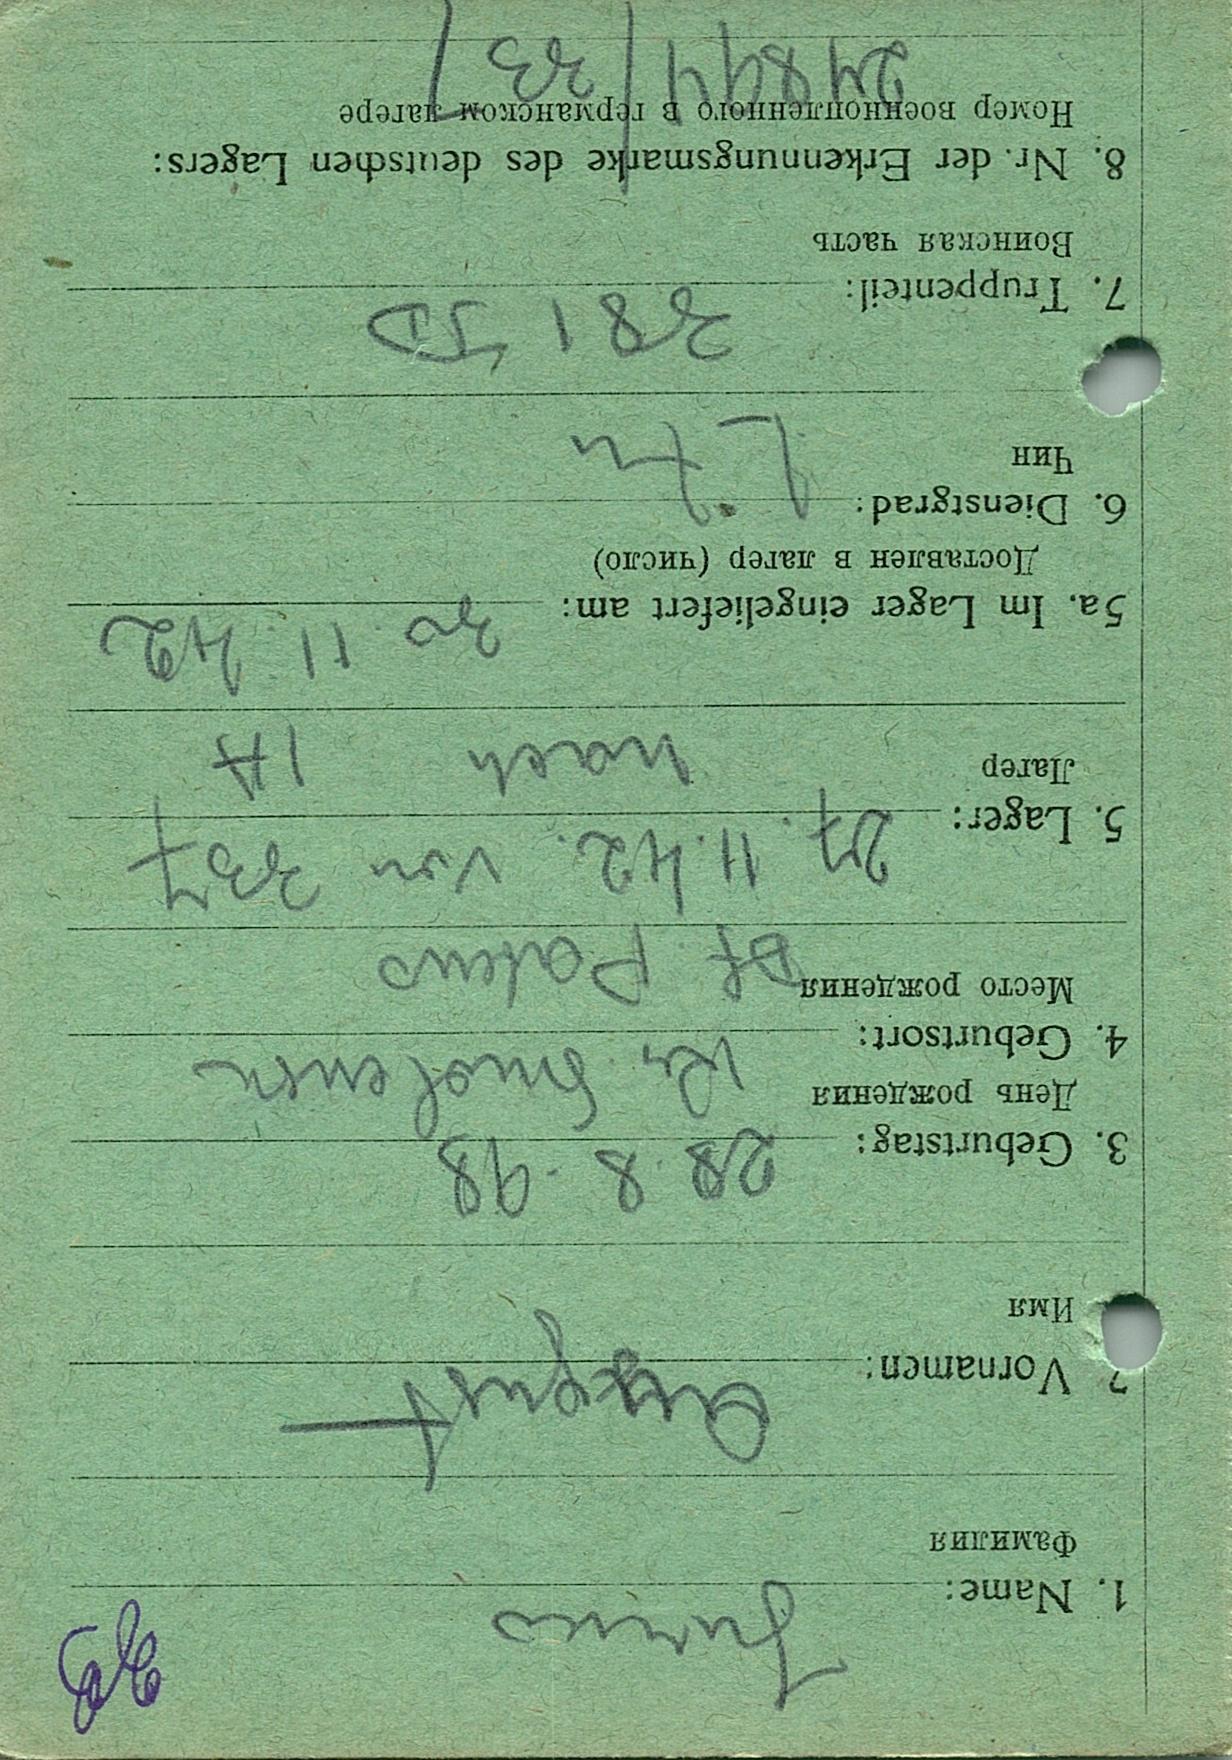 1. Name: Junus
Фамилия
2. Vornamen: August
Имя
3. Geburtstag: 28.8.98
День рождения
4. Geburtsort: Kr. Smolensk
Место рождения Df.
5. Lager: 27.11.42. von 337
Лагер nach 1A
5a. Im Lager eingeliefert am: 30 11. 42
Доставлен в лагер (число)
6. Dienstgrad:
Чин
7. Truppenteil: 381 JD
Воинская часть
8. Nr. der Erkennnungsmarke des deutschen Lagers:
Номер военнопленного в германском лагере